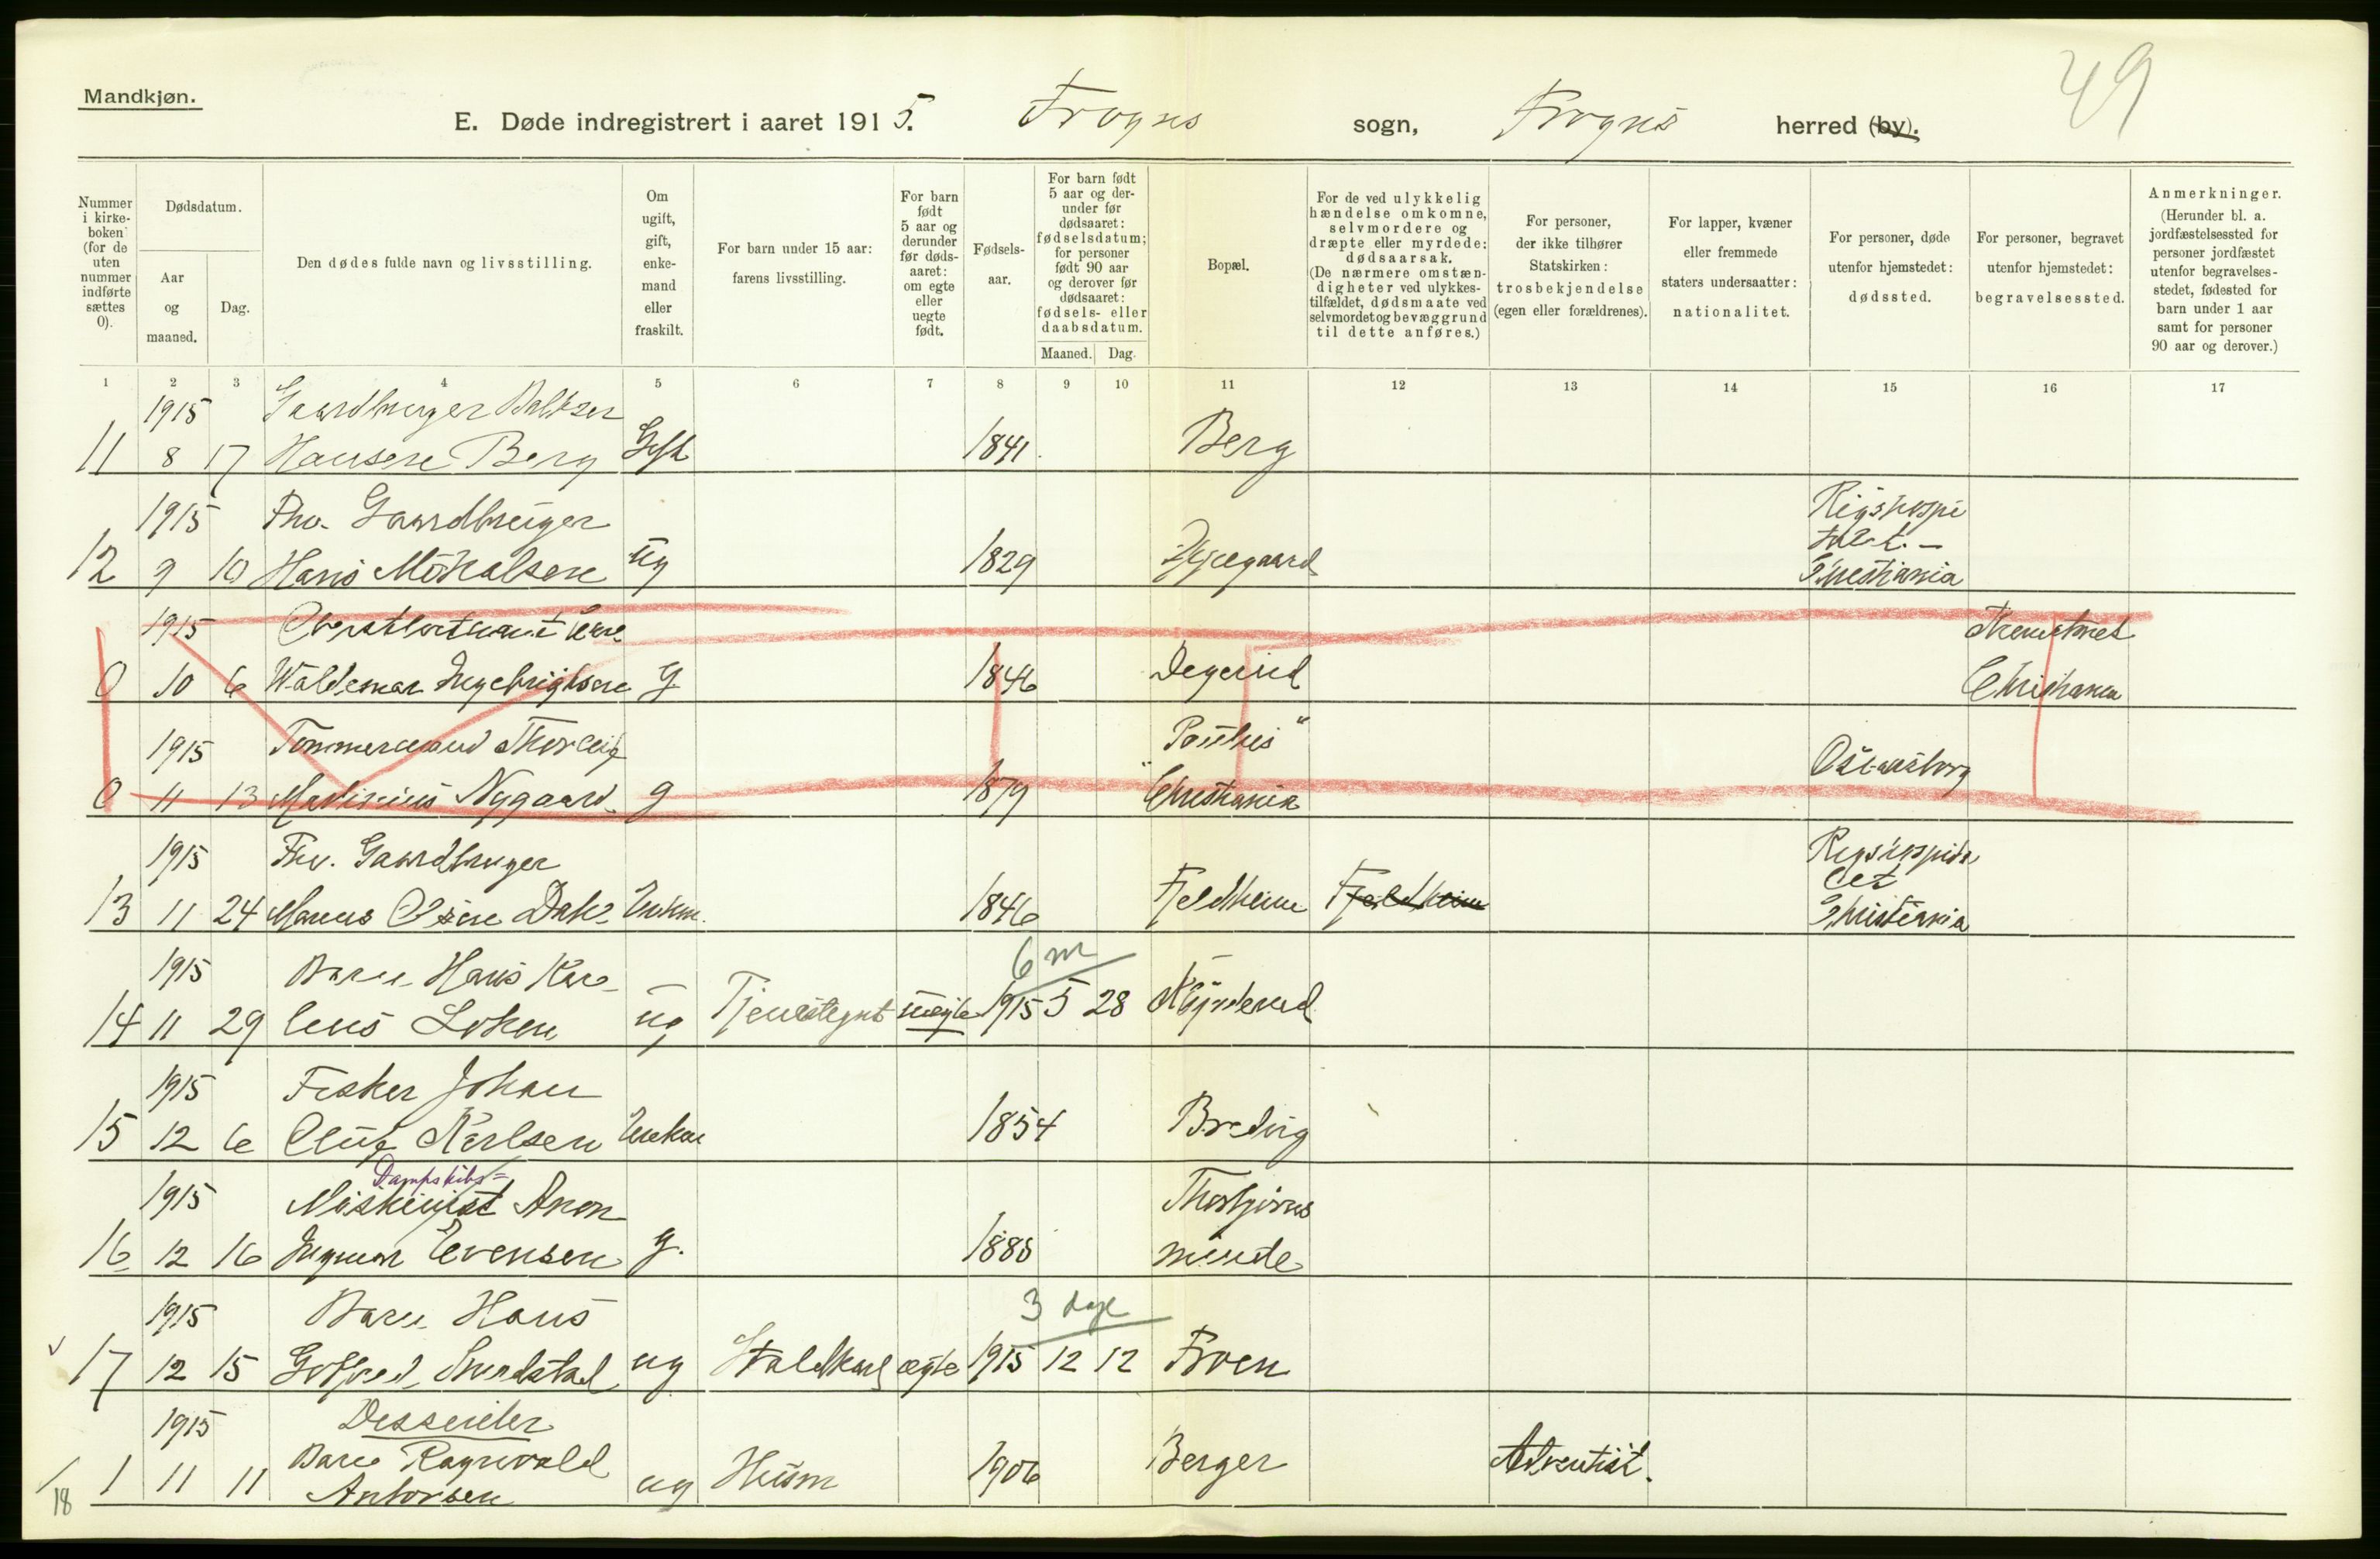 49
Mandkjøn.
E. Døde indregistrert i aaret 1915. Frogns sogn, Frogns herred (by).
Nummer i kirkeboken (for de uten nummer indførte sættes 0).
Dødsdatum.
Aar og maaned.
Dag.
Den dødes fulde navn og livsstilling.
Om ugift, gift, enkemand eller fraskilt.
For barn under 15 aar: farens livsstilling.
For barn født 5 aar og derunder før dødsaaret: om egte eller uegte født.
Fødselsaar.
For barn født 5 aar og derunder før dødsaaret: fødselsdatum; for personer født 90 aar og derover før dødsaaret: fødsels- eller daabsdatum.
Maaned. Dag.
Bopæl.
For de ved ulykkelig hændelse omkomne, selvmordere og dræpte eller myrdede: dødsaarsak. (De nærmere omstændigheter ved ulykkestilfældet, dødsmaate ved selvmordet og bevæggrund til dette anføres.)
For personer, der ikke tilhører Statskirken: trosbekjendelse (egen eller forældrenes).
For lapper, kvæner eller fremmede staters undersaatter: nationalitet.
For personer, døde utenfor hjemstedet: dødssted.
For personer, begravet utenfor hjemstedet: begravelsessted.
Anmerkninger. (Herunder bl. a. jordfæstelsessted for personer jordfæstet utenfor begravelsesstedet, fødested for barn under 1 aar samt for personer 90 aar og derover.)
1 2 3 4 5 6 7 8 9 10 11 12 13 14 15 16 17
1915 Gaardbruger Baltzer
11 8 17 Hansen Berg Gift 1841 Berg
1915 Fhv. Gaardbruger Rigshospi
talet.
12 9 10 Hans ug 1829 Christiania
1915
0 10 6 Waldemar Ingebrigtsen g 1846 Degerud Christiania
1915 Tømmermand Thorleif "Paulus"
0 11 13 Nygaard g 1879 Christiania Oscarsborg
1915 Fhv. Gaardbruger Rigshospita
let
13 11 24 Olsen Enkm. 1846 Fjeldheim Fjeldheim Christiania
6 m
1915 Barn Hans Kar
14 11 29 Løken ug Tjenestegut uegte 1915 5 28
1915 Fisker Johan
15 12 6 Oluf Karlsen Enkm 1854
Dampskibs=
1915 Maskinist Anon Thorbjørns
16 12 16 Ingmar Evensen g. 1888 minde
3 dage
1915 Barn Hans
17 12 15 Gotfred ug Staldkarl ægte 1915 12 12 Froen
1915 Dissenter
Barn Ragnvald
1 11 11 Antonsen ug Husm 1906 Berger Adventist.
18